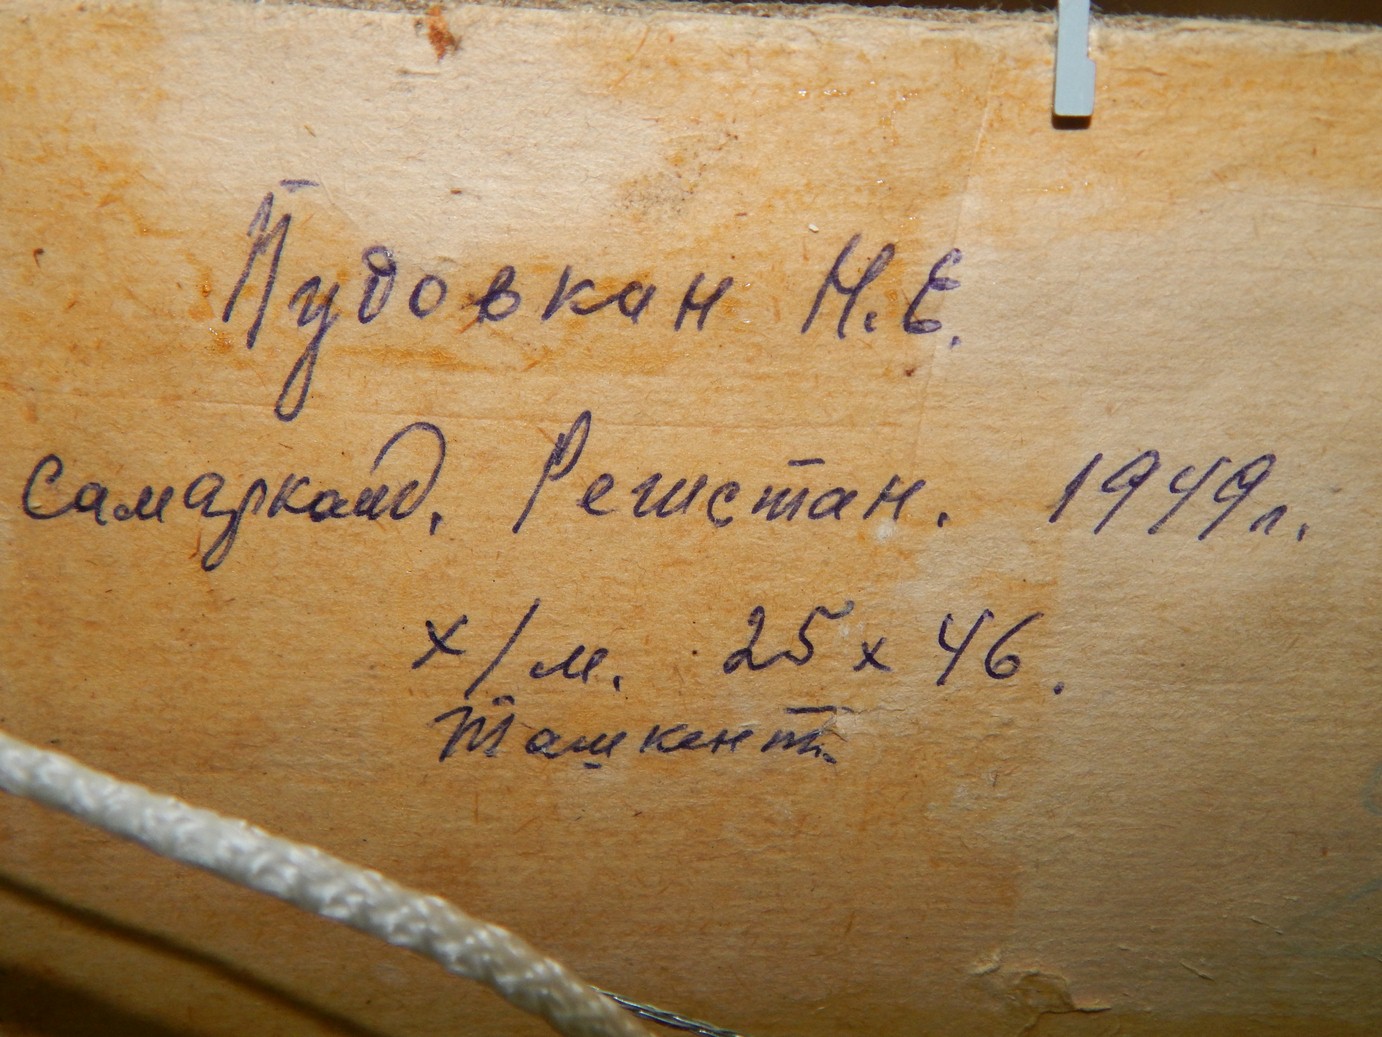 Пудовкан Н.Е.
Самарканд. Регистан. 1949г.
х/м. 25х46.
Ташкент.